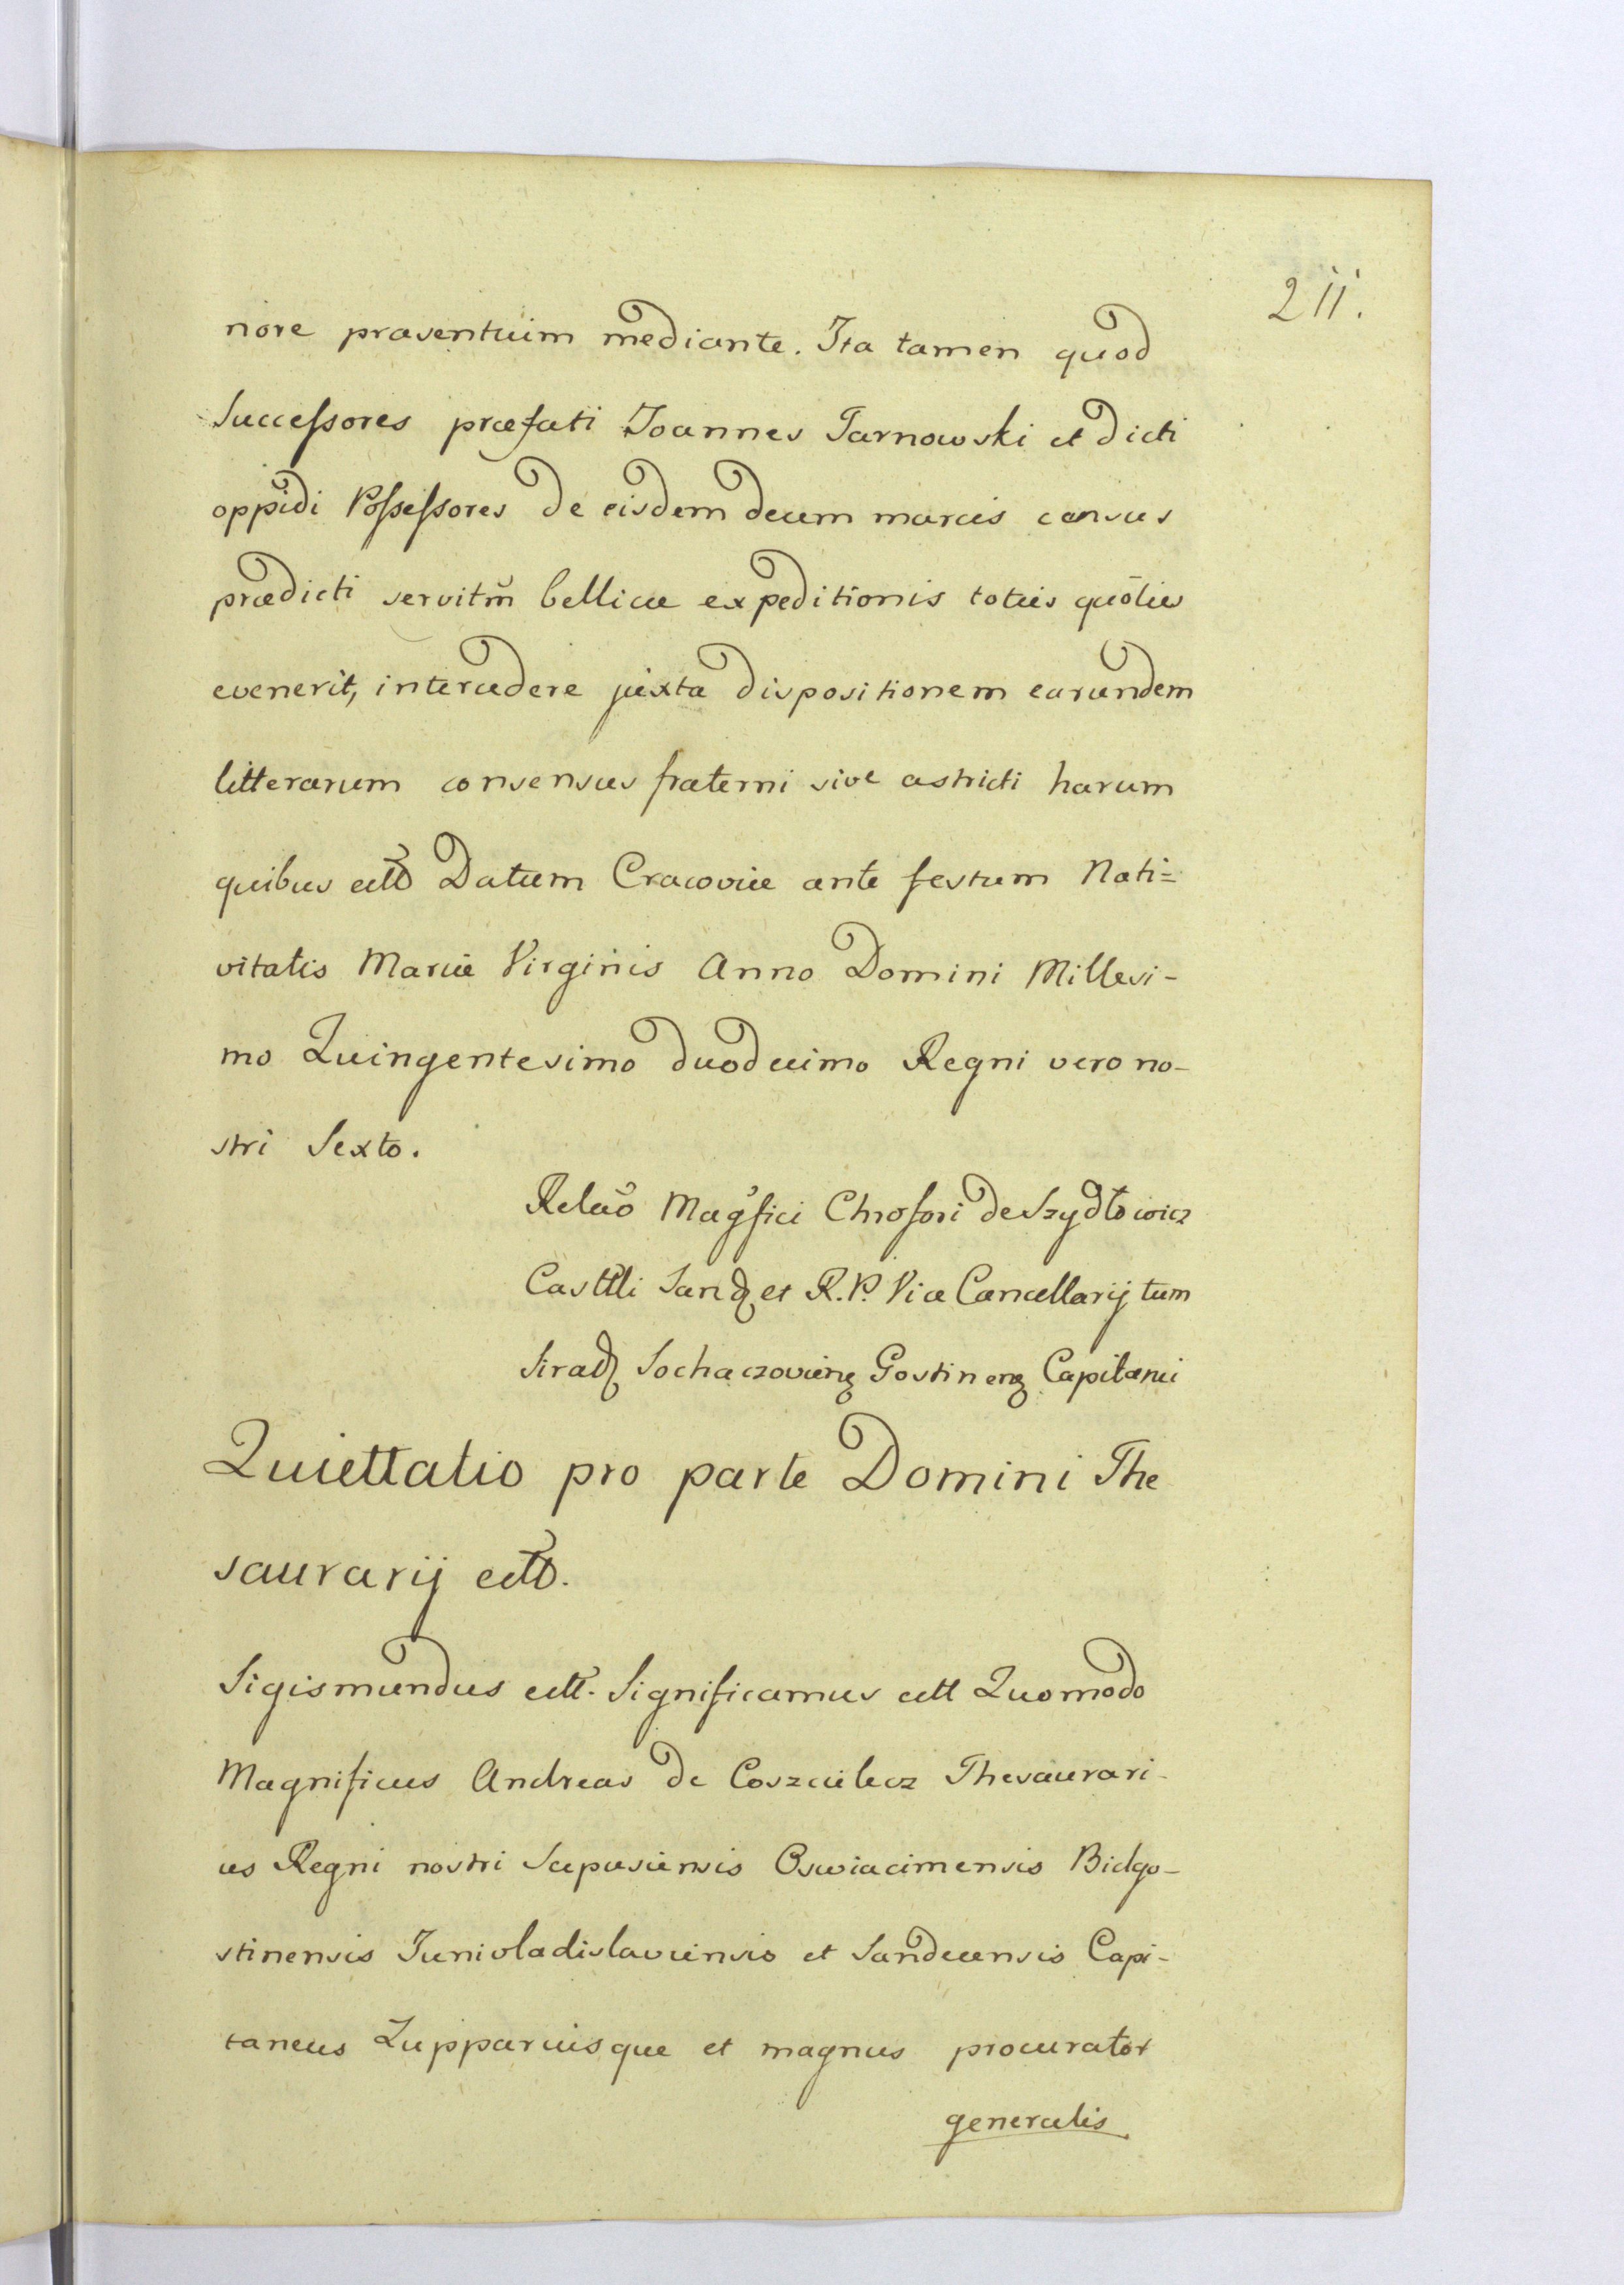 211.
nore præsentium mediante. Ita tamen quod
Successores præfati Joannes Tarnowski et dicti
oppidi Possessores de eisdem decem marcis census
prædicti servitm̃ bellicæ expeditionis toties quōties
evenerit, intercedere juxta dispositionem earundem
litterarum consensus fraterni sive astricti harum
quibus ettc Datum Cracoviæ ante festum Nati=
vitatis Mariæ Virginis Anno Domini Millesi-
mo Quingentesimo duodecimo Regni vero no-
stri Sexto.
Relaõ Magfici Chrofori de Szydłowicz
Casttlli Sandꝫ et R. P. Vice Cancellarij tum
Siradꝫ Sochaczovienꝫ Gostinenꝫ Capitanei
Quiettatio pro parte Domini The
saurarij ettc.
Sigismundus ett. Significamus ett Quomodo
Magnificus Andreas de Coszcielecz Thesaurari-
us Regni nostri Scepusiensis Oswiacimensis Bidgo-
stinensis Junivladislaviensis et Sandecensis Capi-
taneus Zuppariusque et magnus procurator
generalis